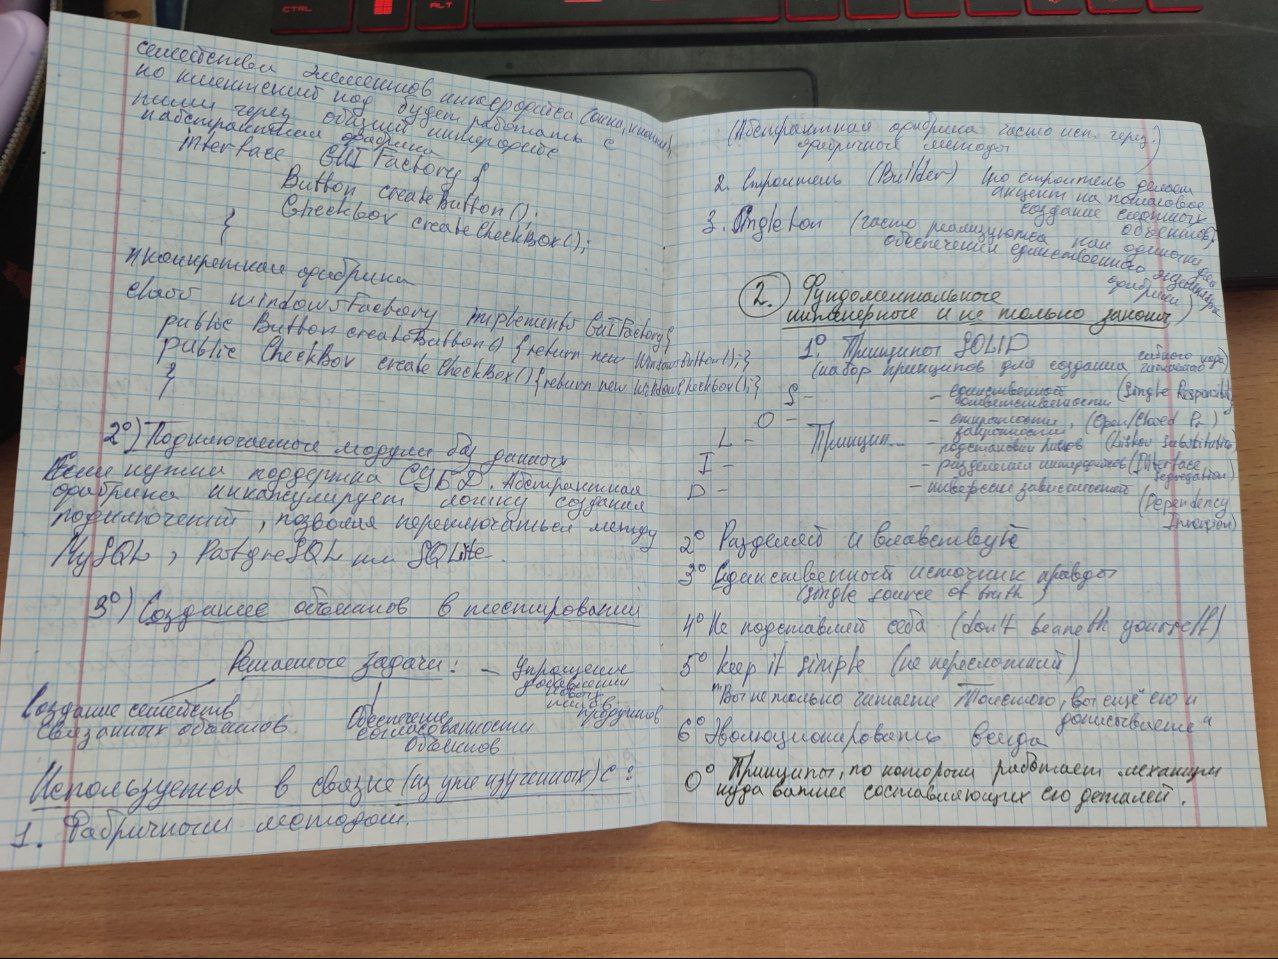 семейства элементов интерфейса (окна, кнопки),
но клиентский код будет работать с
ними через общий интерфейс
//абстрактная фабрика
interface GUIFactory {
Button createButton();
Checkbox createCheckBox();
}
//конкретная фабрика
class WindowsFactory implements GUIFactory {
public Button createButton() {return new WindowsButton();}
public CheckBox createCheckBox() {return new WindowsCheckbox();}
}
2°) Подключаемые модули баз данных
Если нужна поддержка СУБД. Абстрактная
фабрика инкапсулирует логику создания
подключений, позволяя переключаться между
MySQL, PostgreSQL или SQLite.
3°) Создание объектов в тестировании
Решаемые задачи: – Упрощение
добавления
новых
типов
продуктов
Создание семейств
связанных объектов
Обеспечение
согласованности
объектов
Используется в связке (из уже изученных) с:
1. Фабричным методом.
(Абстрактная фабрика часто исп. через
фабричные методы)
2. Строитель (Builder) (но строитель делает
акцент на пошаговое
создание сложных
объектов)
3. Singleton (часто реализуются как одиночки для
обеспечения единственного экземпляра
фабрики)
2. Фундаментальные
инженерные и не только законы
1°. Принципы SOLID
(набор принципов для создания гибкого кода)
S – – единственной ответственности (Single Responsibility
O – – открытости, закрытости (Open/Closed Pr.)
L – Принцип – подстановки Лисков (Liskov Substitution)
I – – разделения интерфейсов (Interface
Segregation)
D – – инверсии зависимостей (Dependency
Inversion)
2° Разделяй и влавствуй
3° Единственный источник правды
(single source of truth)
4° Не подставляй себя (don't beneth yourself)
5° keep it simple (не пересложняй)
"Вы не только читаете Толстого, вы ещё его и
дописываете"
6° Эволюционировать всегда
0° Принципы, по которым работает механизм
куда важнее составляющих его деталей.